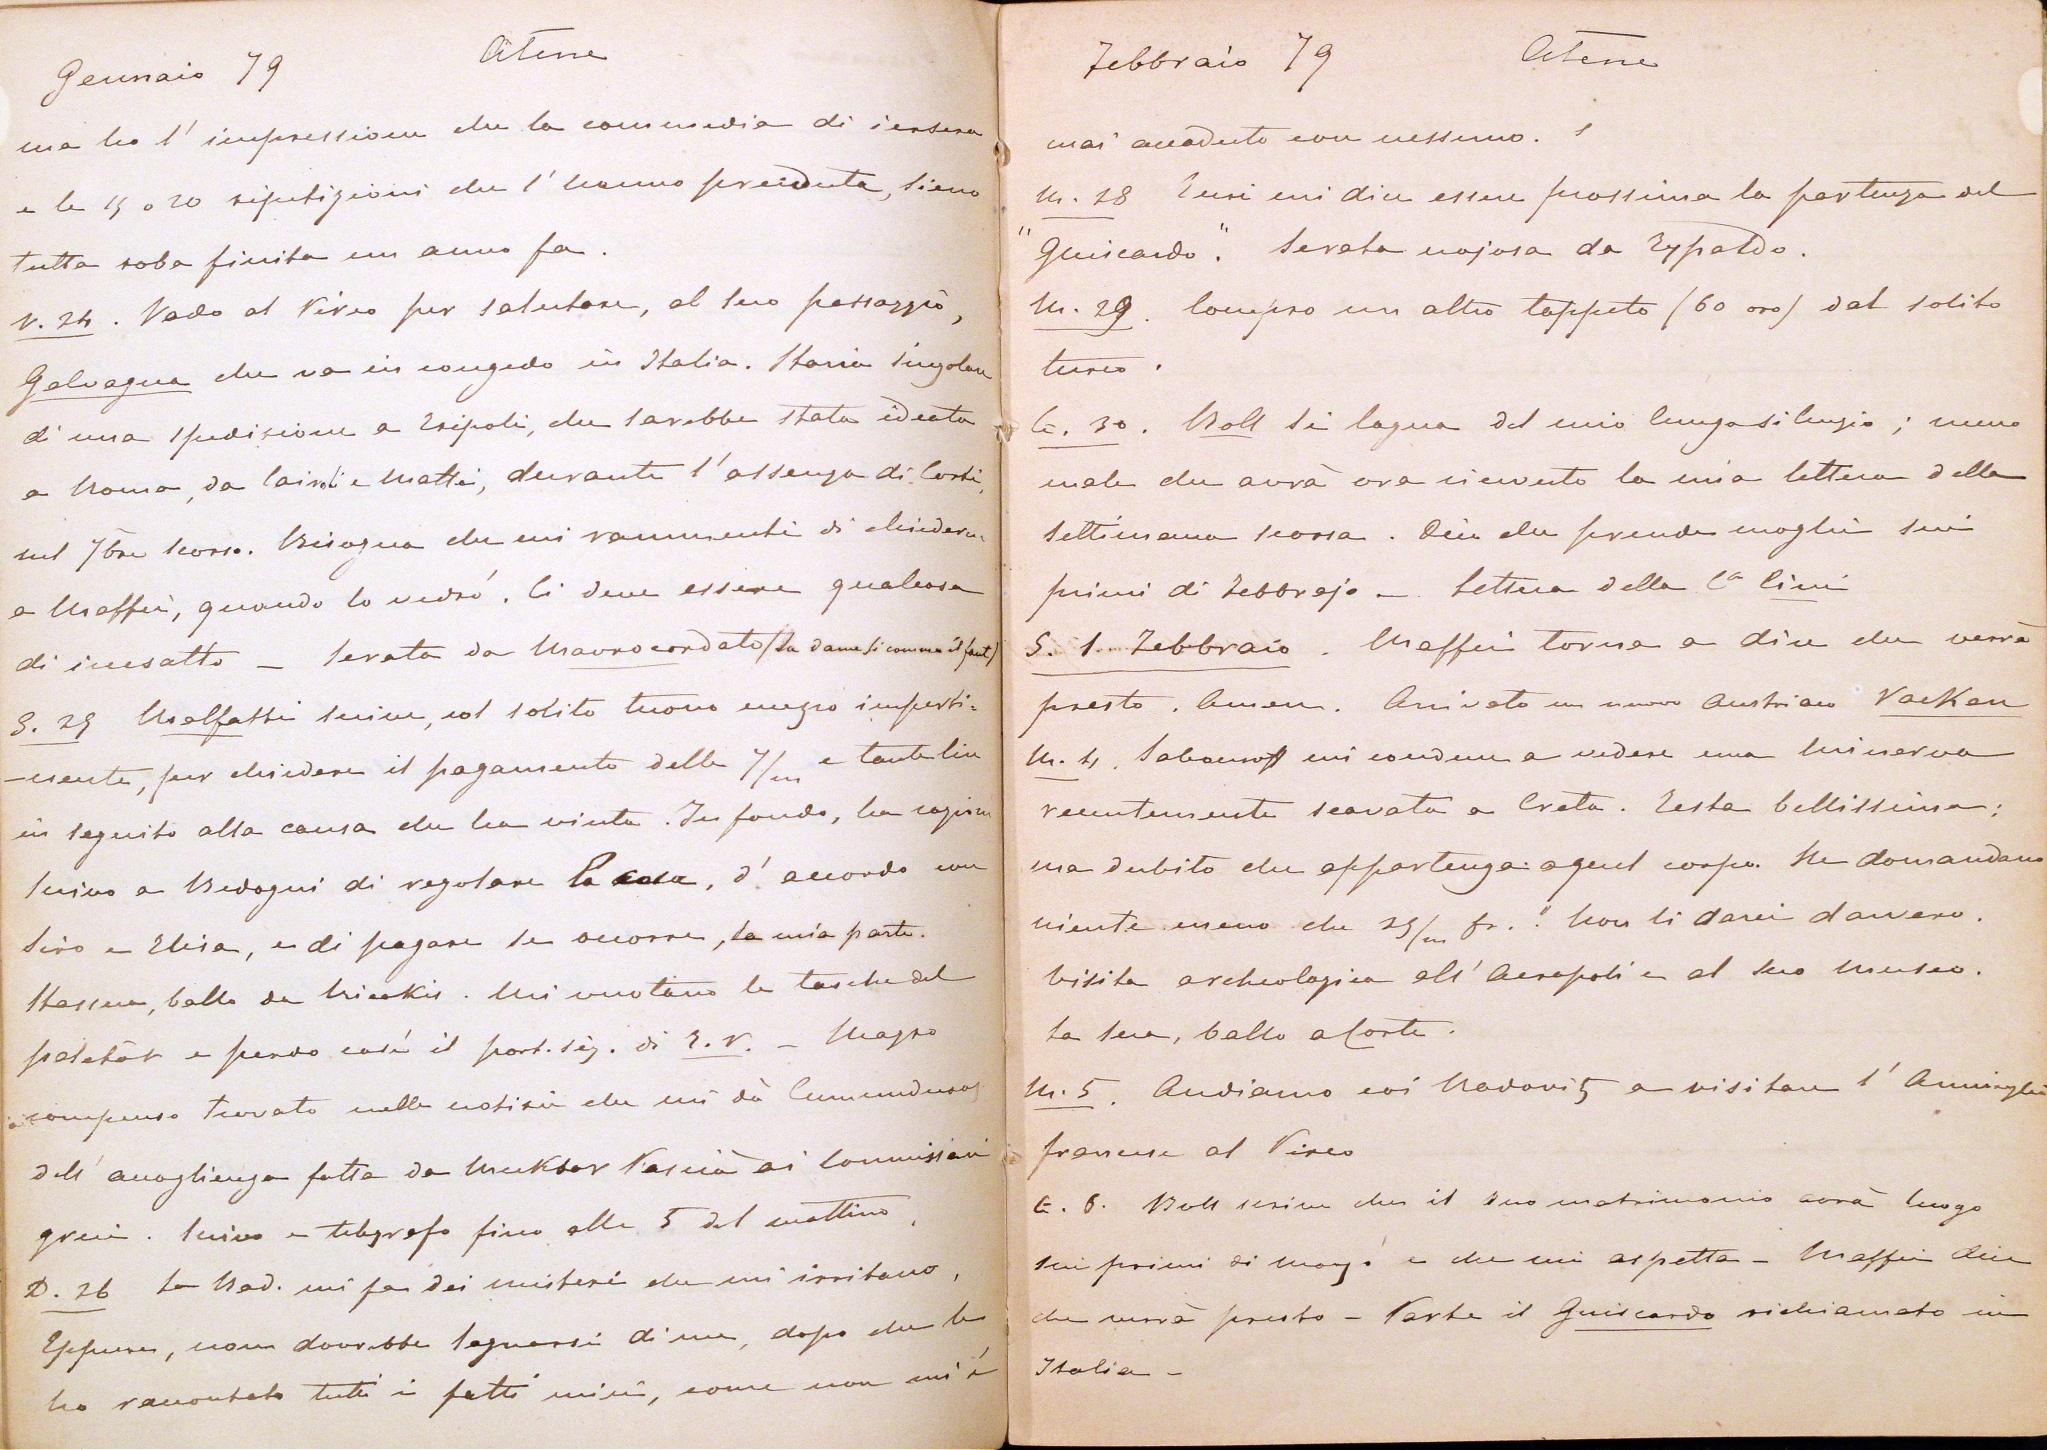 Gennaio 79 Atene
ma ho l' impressione che la commedia di iersera
e le 15 o 20 ripetizioni che l' hanno preceduta, sieno
tutta roba finita un anno fa.
V. 24. Vado al Pireo per salutare, al suo passaggio,
Galvagna che va in congedo in Italia. Storia singolare
di una spedizione a Tripoli, che sarebbe stata ideata
a Roma, da Cairoli e Maffei, durante l' assenza di Corti,
nel 7bre scorso. Bisogna che mi rammenti di chiederne
a Maffei, quando lo vedrò. Ci deve essere qualcosa
di inesatto — Serata da Mavrocordato (la dame si comme il faut)
S. 25 Malfatti scrive, col solito tuono mezzo imperti-
-nente, per chiedere il pagamento delle 7/m e tante lire
in seguito alla causa che ha vinta. In fondo, ha ragione
Scrivo a Bedogni di regolare la cosa, d' accordo con
Siro e Elisa, e di pagare se occorre, la mia parte.
Stassera, ballo da . Mi vuotano le tasche del
paletôt e perdo così il port. sig. di E. V. — Magro
compenso trovato nelle notizie che mi dà
dell' accoglienza fatta da Muktar Pascià ai Commissari
greci. Scrivo e telegrafo fino alle 5 del mattino.
D. 26 La Rad. mi fa dei misteri che mi irritano,
Eppure, non dovrebbe lagnarsi di me, dopo che le
ho raccontato tutti i fatti miei, come non mi è
Febbraio 79 Atene
mai accaduto con nessuno.!
M. 28 Tusi mi dice essere prossima la partenza del
"Guiscardo". Serata nojosa da Typaldo.
M. 29. Compro un altro tappeto (60 oro) dal solito
turco.
G. 30. Boll si lagna del mio lungo silenzio; meno
male che avrà ora ricevuto la mia lettera della
settimana scorsa. Dice che prende moglie sui
primi di Febbrajo — Lettera della Ca Cini
S. 1 Febbraio. Maffei torna a dire che verrà
presto. Amen. Arrivato un nuovo Austriaco Vacken
M. 4. Sabouroff mi conduce a vedere una Minerva
recentemente scavata a Creta. Testa bellissima;
ma dubito che appartenga a quel corpo. Ne domandano
niente meno che 25/m fr.! Non li darei davvero.
Visita archeologica all' Acropoli e al suo museo.
La sera, ballo a Corte.
M. 5. Andiamo coi Radovitz a visitare l' Ammiraglio
francese al Pireo
G. 6. Boll scrive che il suo matrimonio avrà luogo
sui primi di marzo e che mi aspetta — Maffei dice
che verrà presto — Parte il Guiscardo richiamato in
Italia —